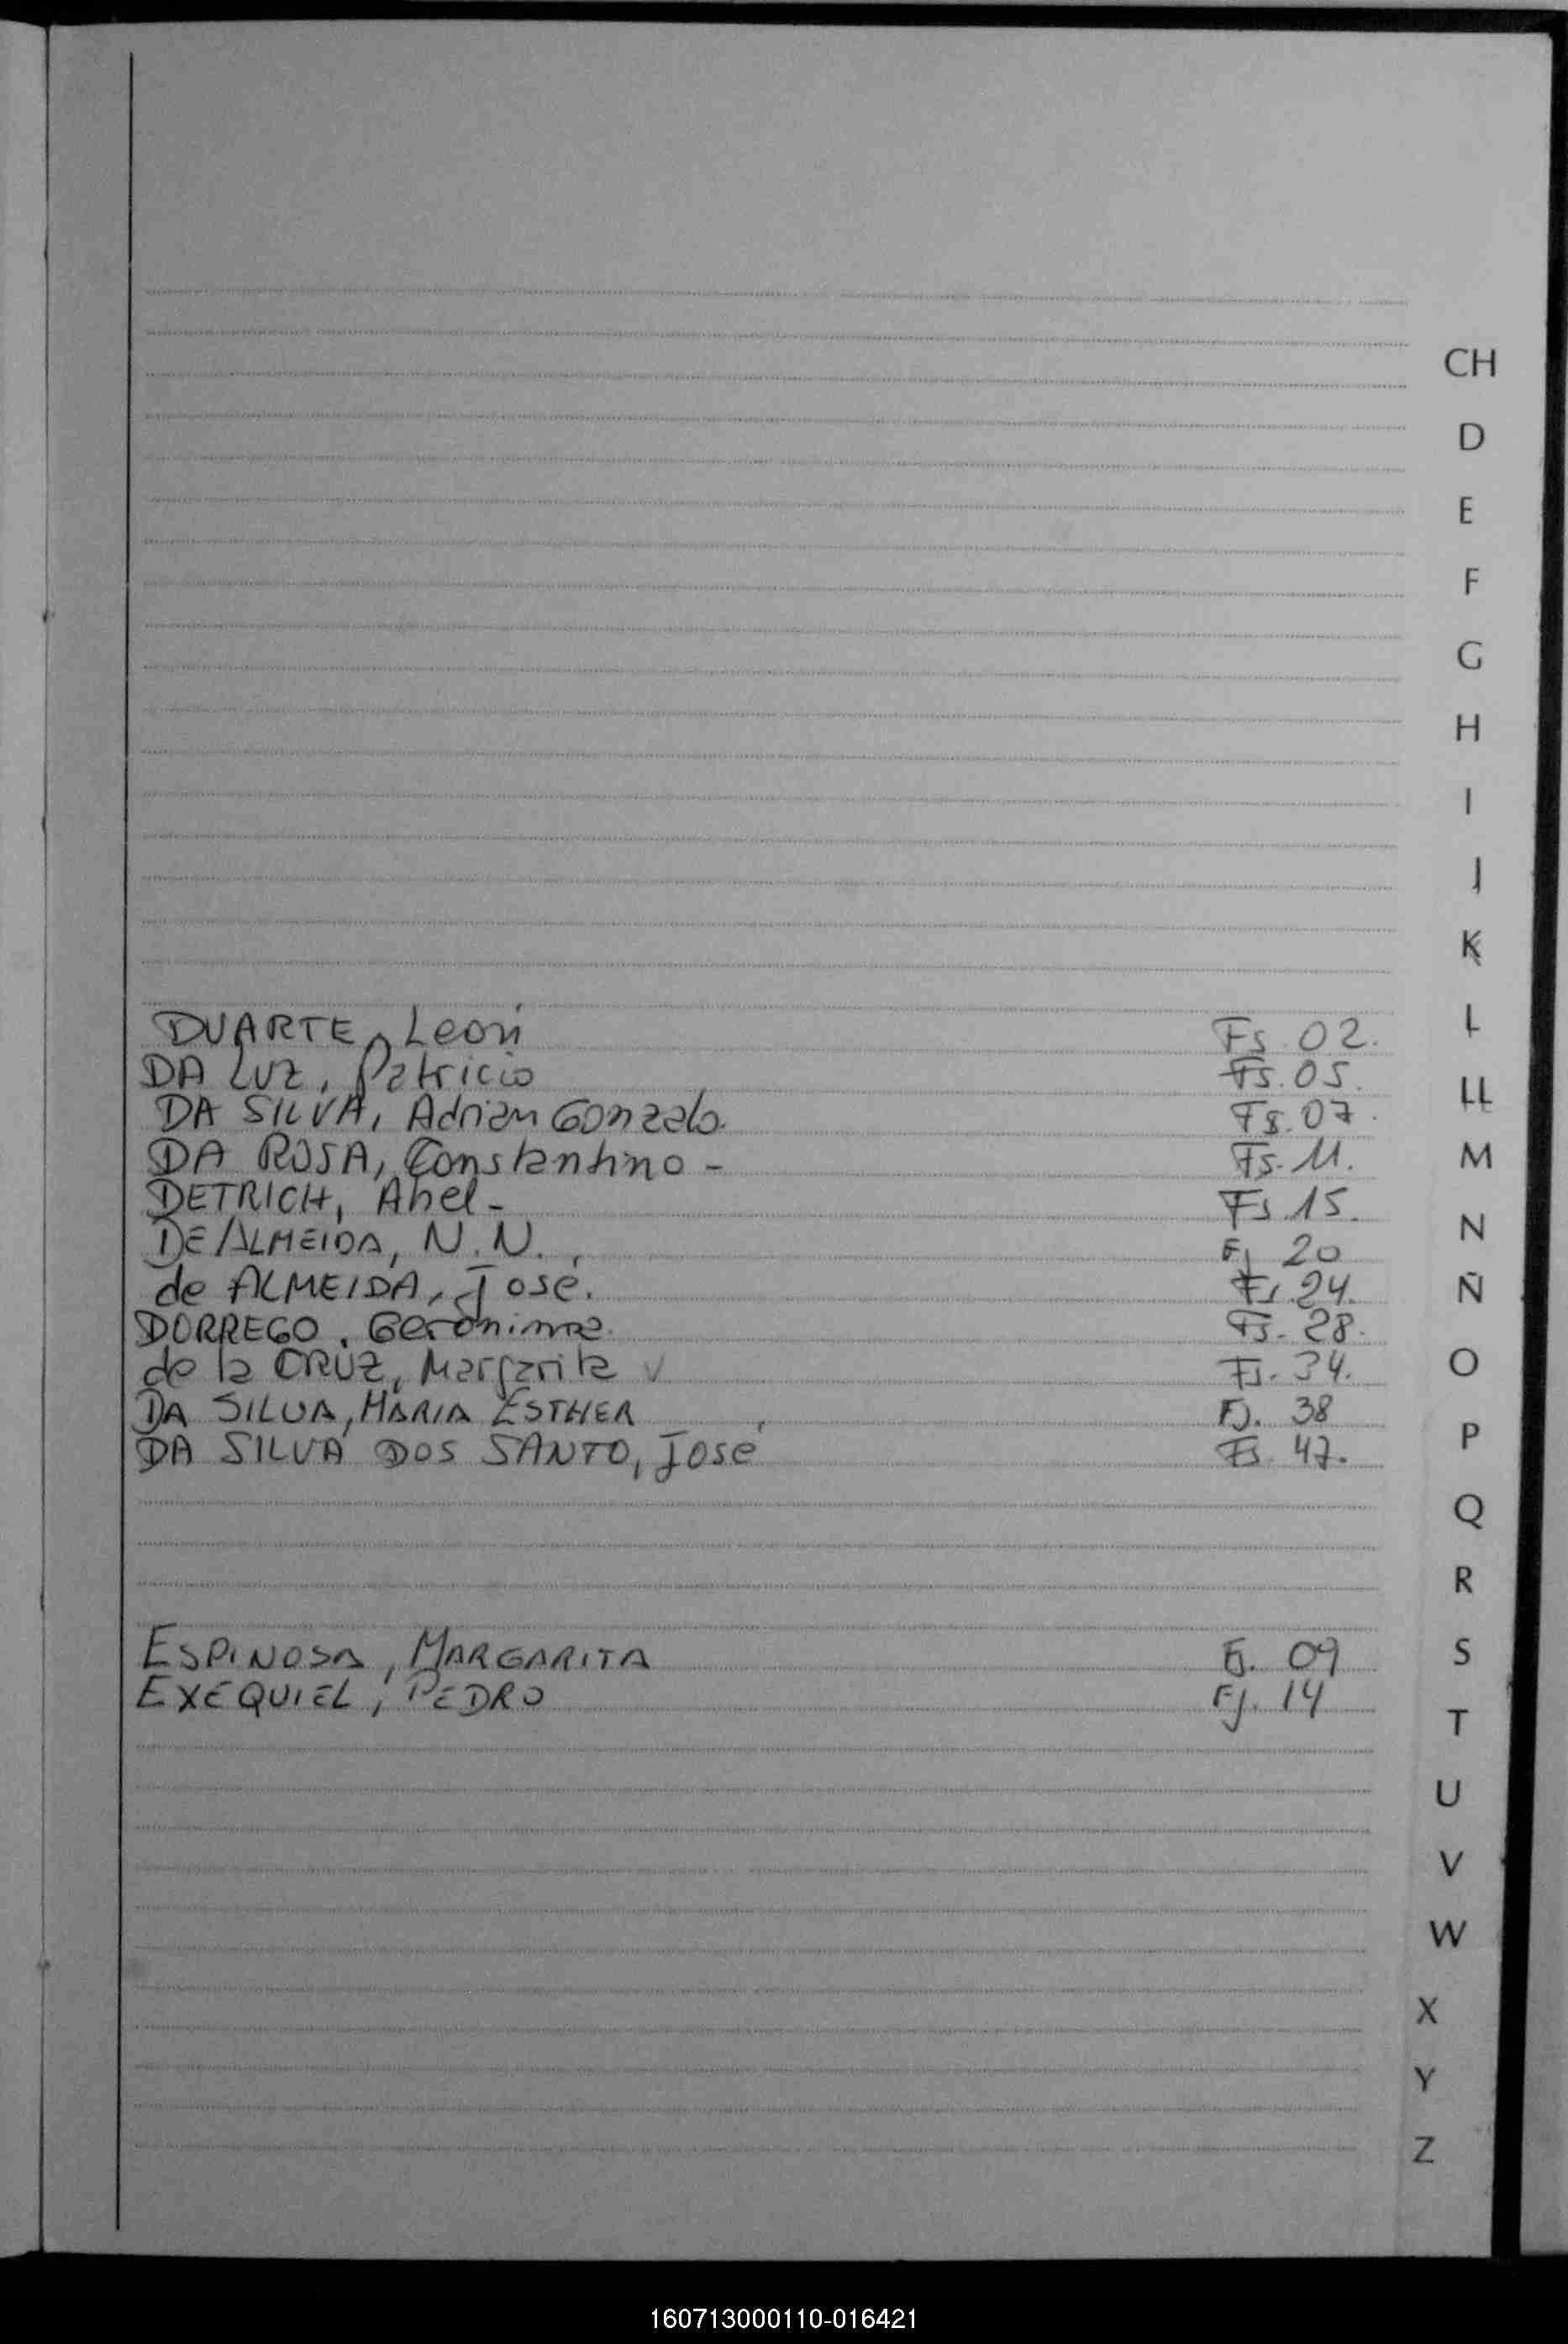 CH
D
E
F
G
H
I
J
K
L
LL
M
N
Ñ
O
P
Q
R
S
T
U
V
W
X
Y
Z
DUARTE, León Fs. 02.
DA LUZ, Patricio Fs. 05.
DA SILVA, Adrian Gonzalo. Fs. 07.
DA ROSA, Constantino - Fs. 11.
DETRICH, Abel - Fs. 15.
DE ALMEIDA, N.N. Fj 20
de ALMEIDA, José. Fs. 24.
DORREGO, Gerónima. Fs. 28.
de la CRUZ, Margarita Fs. 34.
DA SILVA, MARIA ESTHER FJ. 38
DA SILVA DOS SANTO, José Fs. 47.
ESPINOSA, MARGARITA Fj. 09
EXEQUIEL, PEDRO Fj. 14
160713000110-016421